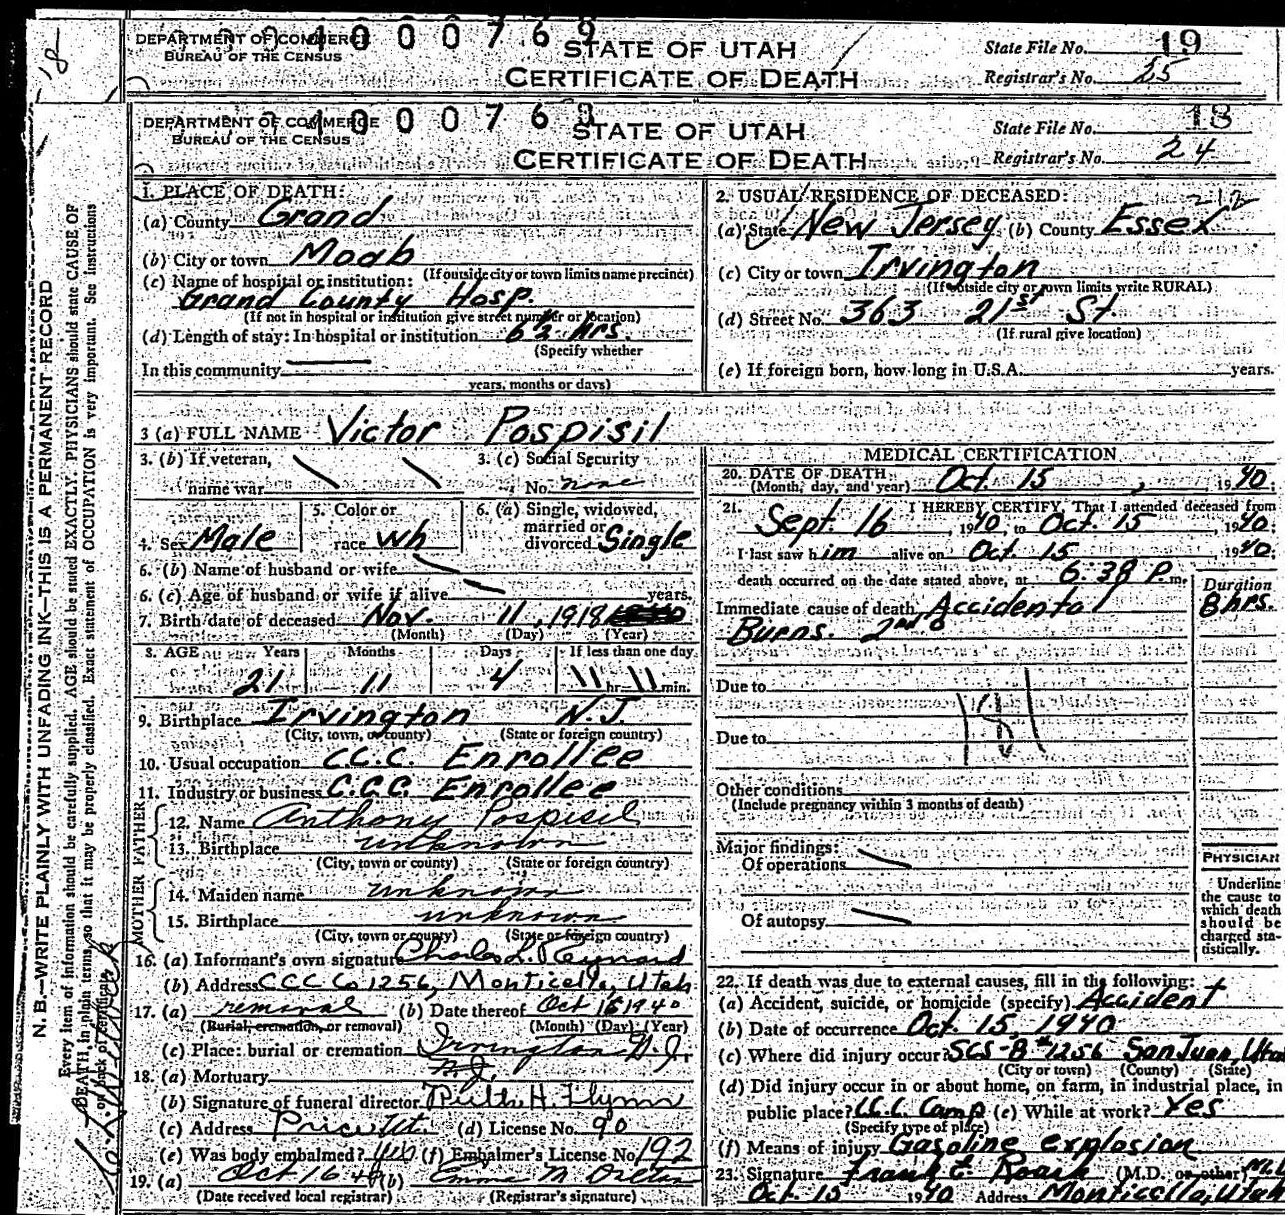 18
DEPARTMENT OF COMMERCE
BUREAU OF THE CENSUS
1000769
STATE OF UTAH
CERTIFICATE OF DEATH
State File No. 19
Registrar's No. 25
DEPARTMENT OF COMMERCE
BUREAU OF THE CENSUS
1000769
STATE OF UTAH
CERTIFICATE OF DEATH
State File No. 18
Registrar's No. 24
N. B.—WRITE PLAINLY WITH UNFADING INK—THIS IS A PERMANENT RECORD
Every item of information should be carefully supplied. AGE should be stated EXACTLY. PHYSICIANS should state CAUSE OF
DEATH in plain terms, so that it may be properly classified. Exact statement of OCCUPATION is very important. See instructions
on back of certificate.
1. PLACE OF DEATH:
(a) County Grand
(b) City or town Moab
(If outside city or town limits name precinct)
(c) Name of hospital or institution:
Grand County Hosp.
(If not in hospital or institution give street number or location)
(d) Length of stay: In hospital or institution 6½ hrs.
(Specify whether
In this community
years, months or days)
2. USUAL RESIDENCE OF DECEASED:
(a) State New Jersey (b) County Essex
(c) City or town Irvington
(If outside city or town limits write RURAL)
(d) Street No. 363 21st St.
(If rural give location)
(e) If foreign born, how long in U.S.A. years.
3 (a) FULL NAME Victor Pospisil
3. (b) If veteran,
name war
3. (c) Social Security
No. none
4. Sex Male
5. Color or
race wh
6. (a) Single, widowed,
married or
divorced Single
6. (b) Name of husband or wife
6. (c) Age of husband or wife if alive years.
7. Birth date of deceased Nov. 11, 1918
(Month) (Day) (Year)
8. AGE Years Months Days If less than one day
21 11 4 hr. min.
9. Birthplace Irvington N.J.
(City, town, or county) (State or foreign country)
10. Usual occupation C.C.C. Enrollee
11. Industry or business C.C.C. Enrollee
FATHER
12. Name Anthony Pospisil
13. Birthplace unknown
(City, town or county) (State or foreign country)
MOTHER
14. Maiden name unknown
15. Birthplace unknown
(City, town or county) (State or foreign country)
16. (a) Informant's own signature Charles L. Reynard
(b) Address CCC Co 1256, Monticello, Utah
17. (a) removal (b) Date thereof Oct 16 1940
(Burial, cremation, or removal) (Month) (Day) (Year)
(c) Place: burial or cremation Irvington N.J.
18. (a) Mortuary N.J.
(b) Signature of funeral director H. Flynn
(c) Address Price Ut. (d) License No. 90
(e) Was body embalmed? yes (f) Embalmer's License No. 192
19. (a) Oct 16 40 (b) Emma M
(Date received local registrar) (Registrar's signature)
MEDICAL CERTIFICATION
20. DATE OF DEATH
(Month, day, and year) Oct. 15, 1940.
21. I HEREBY CERTIFY, That I attended deceased from
Sept. 16, 1940, to Oct. 15, 1940
I last saw him alive on Oct 15, 1940;
death occurred on the date stated above, at 6:38 P. m.
Duration
Immediate cause of death Accidental 8 hrs.
Burns. 2nd °
Due to
181
Due to
Other conditions
(Include pregnancy within 3 months of death)
Major findings:
Of operations
Of autopsy
PHYSICIAN
Underline
the cause to
which death
should be
charged sta-
tistically.
22. If death was due to external causes, fill in the following:
(a) Accident, suicide, or homicide (specify) Accident
(b) Date of occurrence Oct. 15, 1940
(c) Where did injury occur? SCS-8 #1256 San Juan, Utah
(City or town) (County) (State)
(d) Did injury occur in or about home, on farm, in industrial place, in
public place? C.C.C. Camp (e) While at work? Yes
(Specify type of place)
(f) Means of injury Gasoline explosion
23. Signature Frank E. Roark (M.D. or other) M.D.
Oct. 15 1940 Address Monticello, Utah